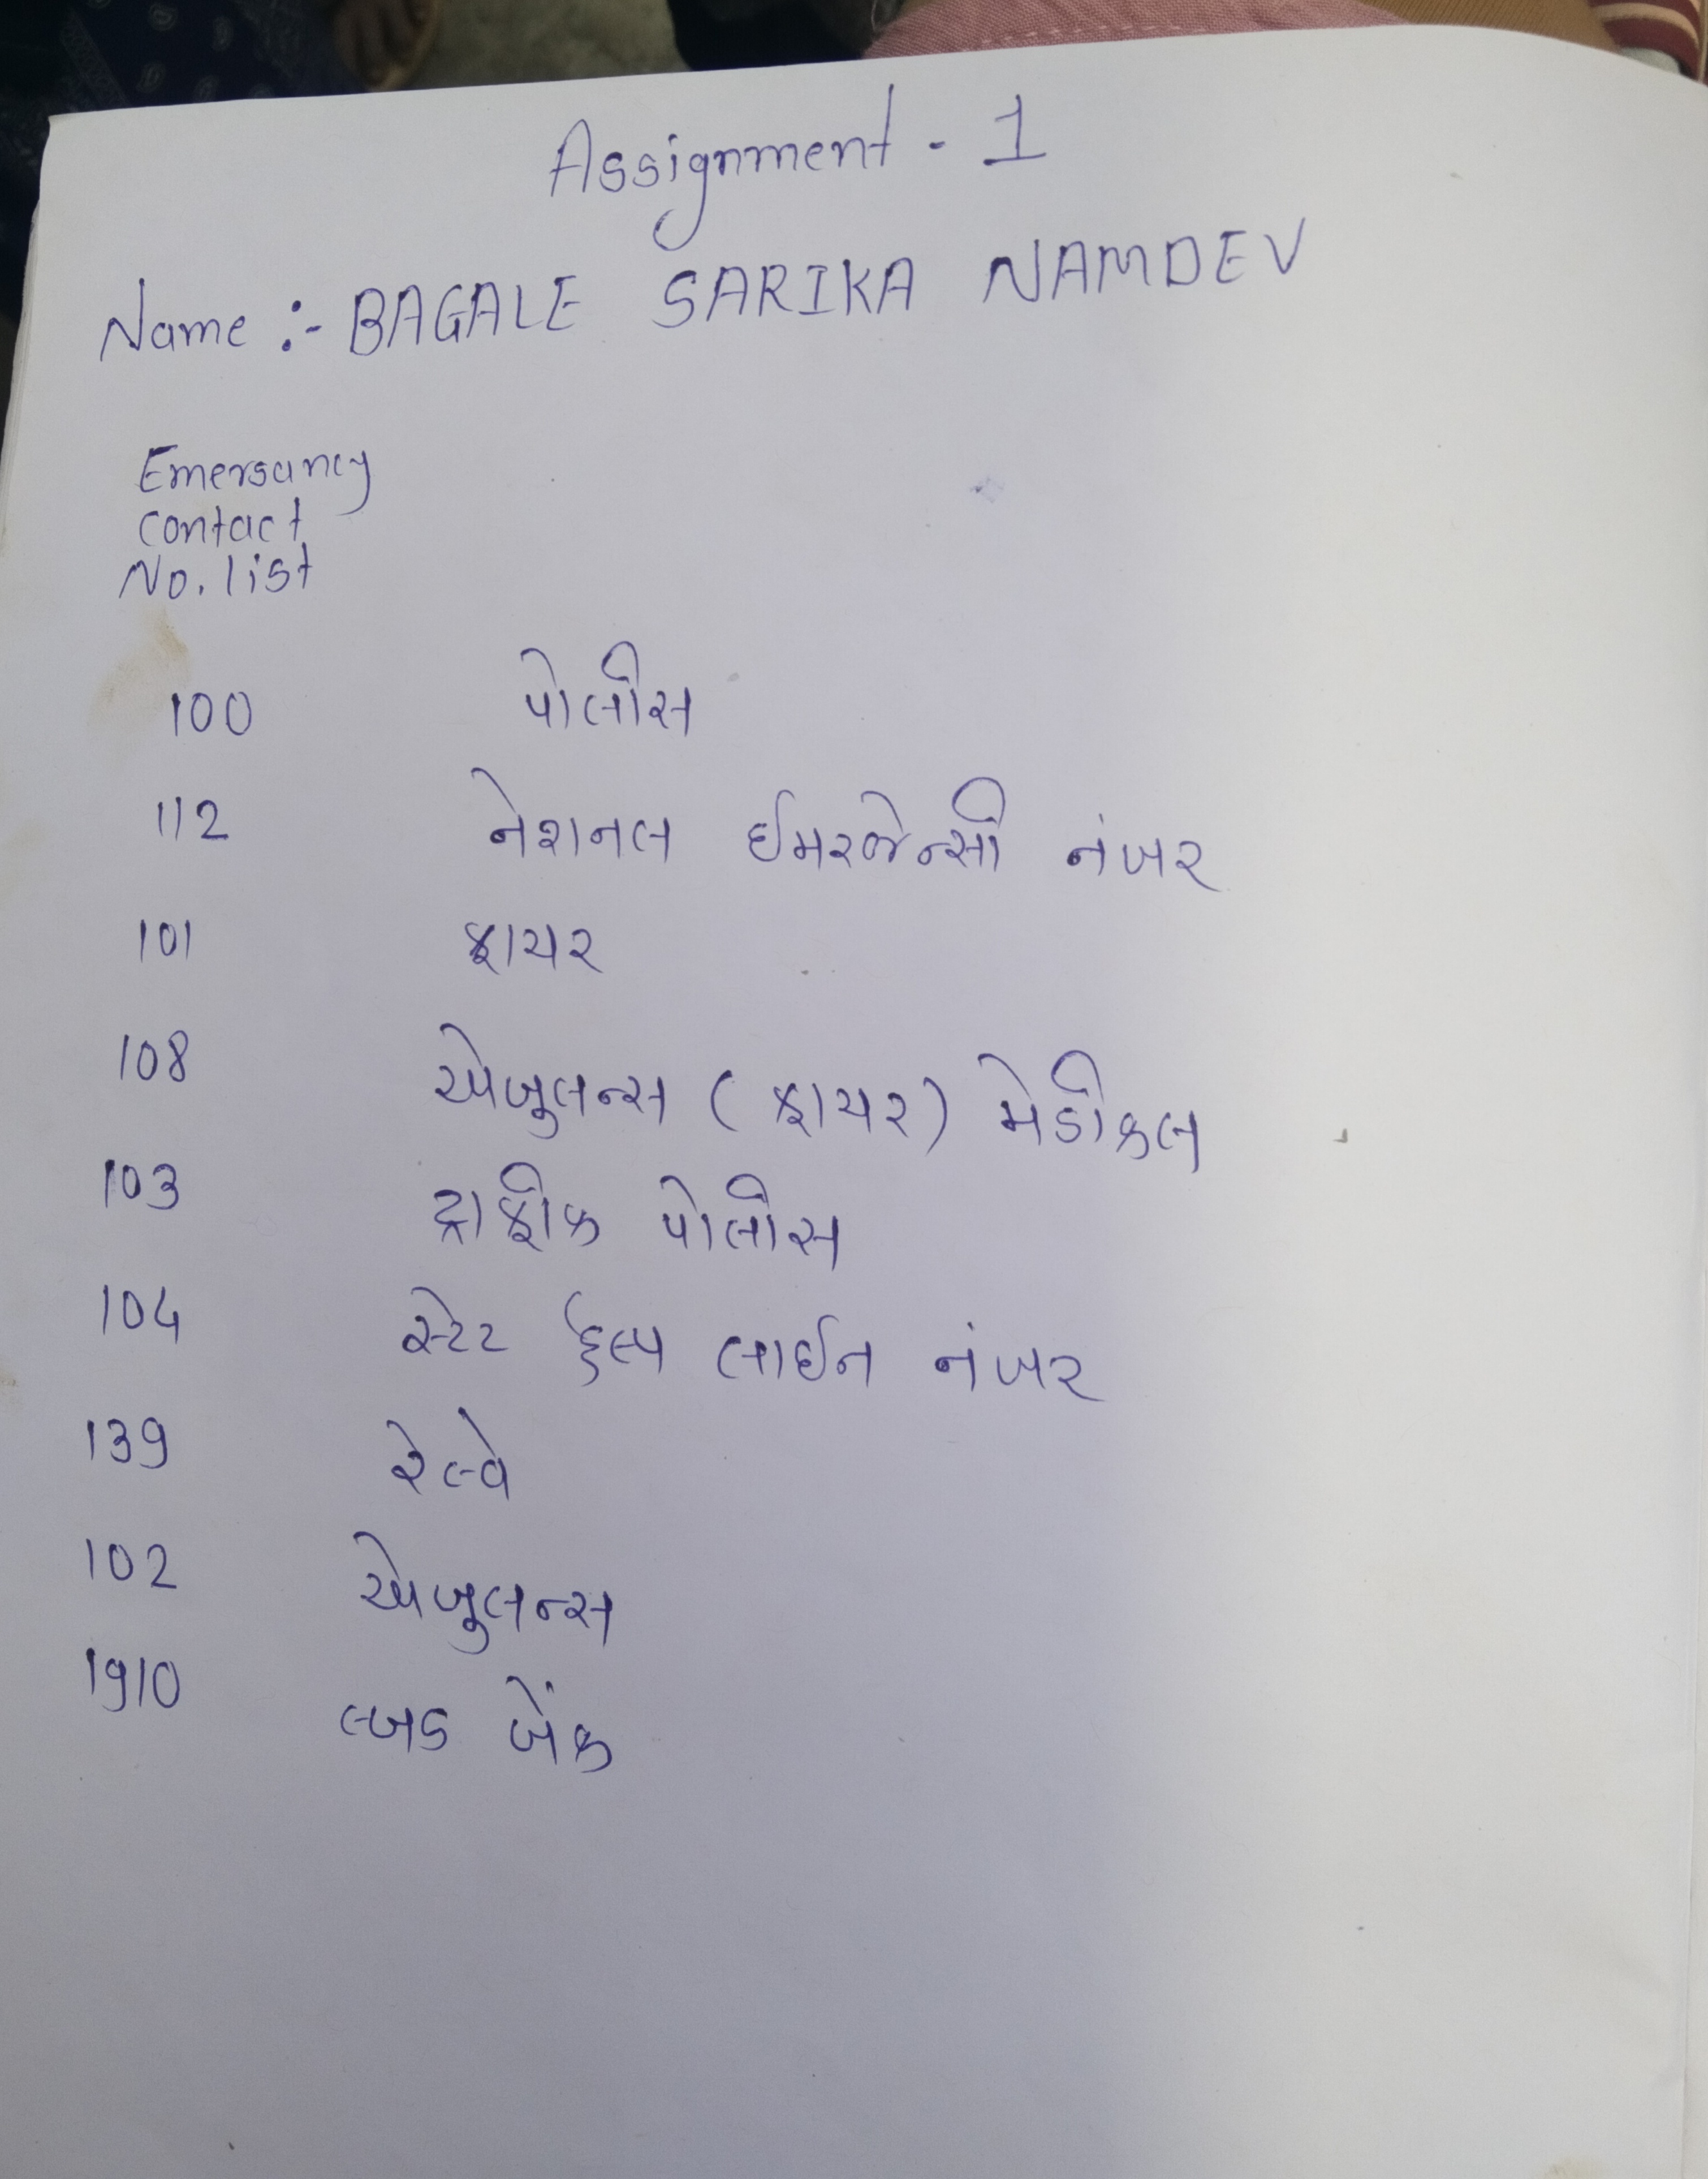 Assignment - 1
Name :- BAGALE SARIKA NAMDEV
Emersancy
contact
No. list
100 પોલીસ
112 નેશનલ ઈમરજેન્સી નંબર
101 ફાયર
108 એમ્બુલન્સ (ફાયર) મેડીકલ
103 ટ્રાફીક પોલીસ
104 સ્ટેટ હેલ્પ લાઈન નંબર
139 રેલ્વે
102 એમ્બુલન્સ
1910 બ્લડ બેંક